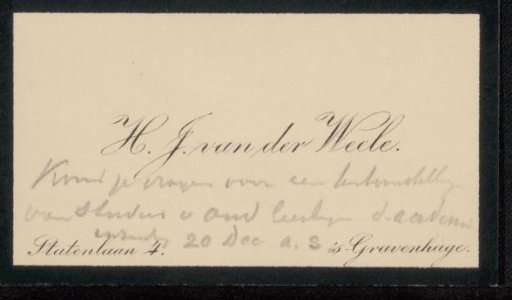 H. J. van der Weele.
Komt je vragen voor een tentoonstelling
van studies v oud leerlingen d. academie
Statenlaan 4. 20 Dec a. s 's-Gravenhage.